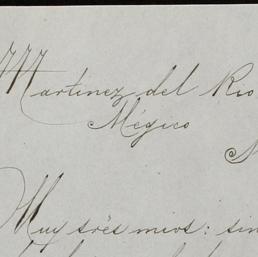 Martinez del Rio
Mégico
Muy srës mios: sin